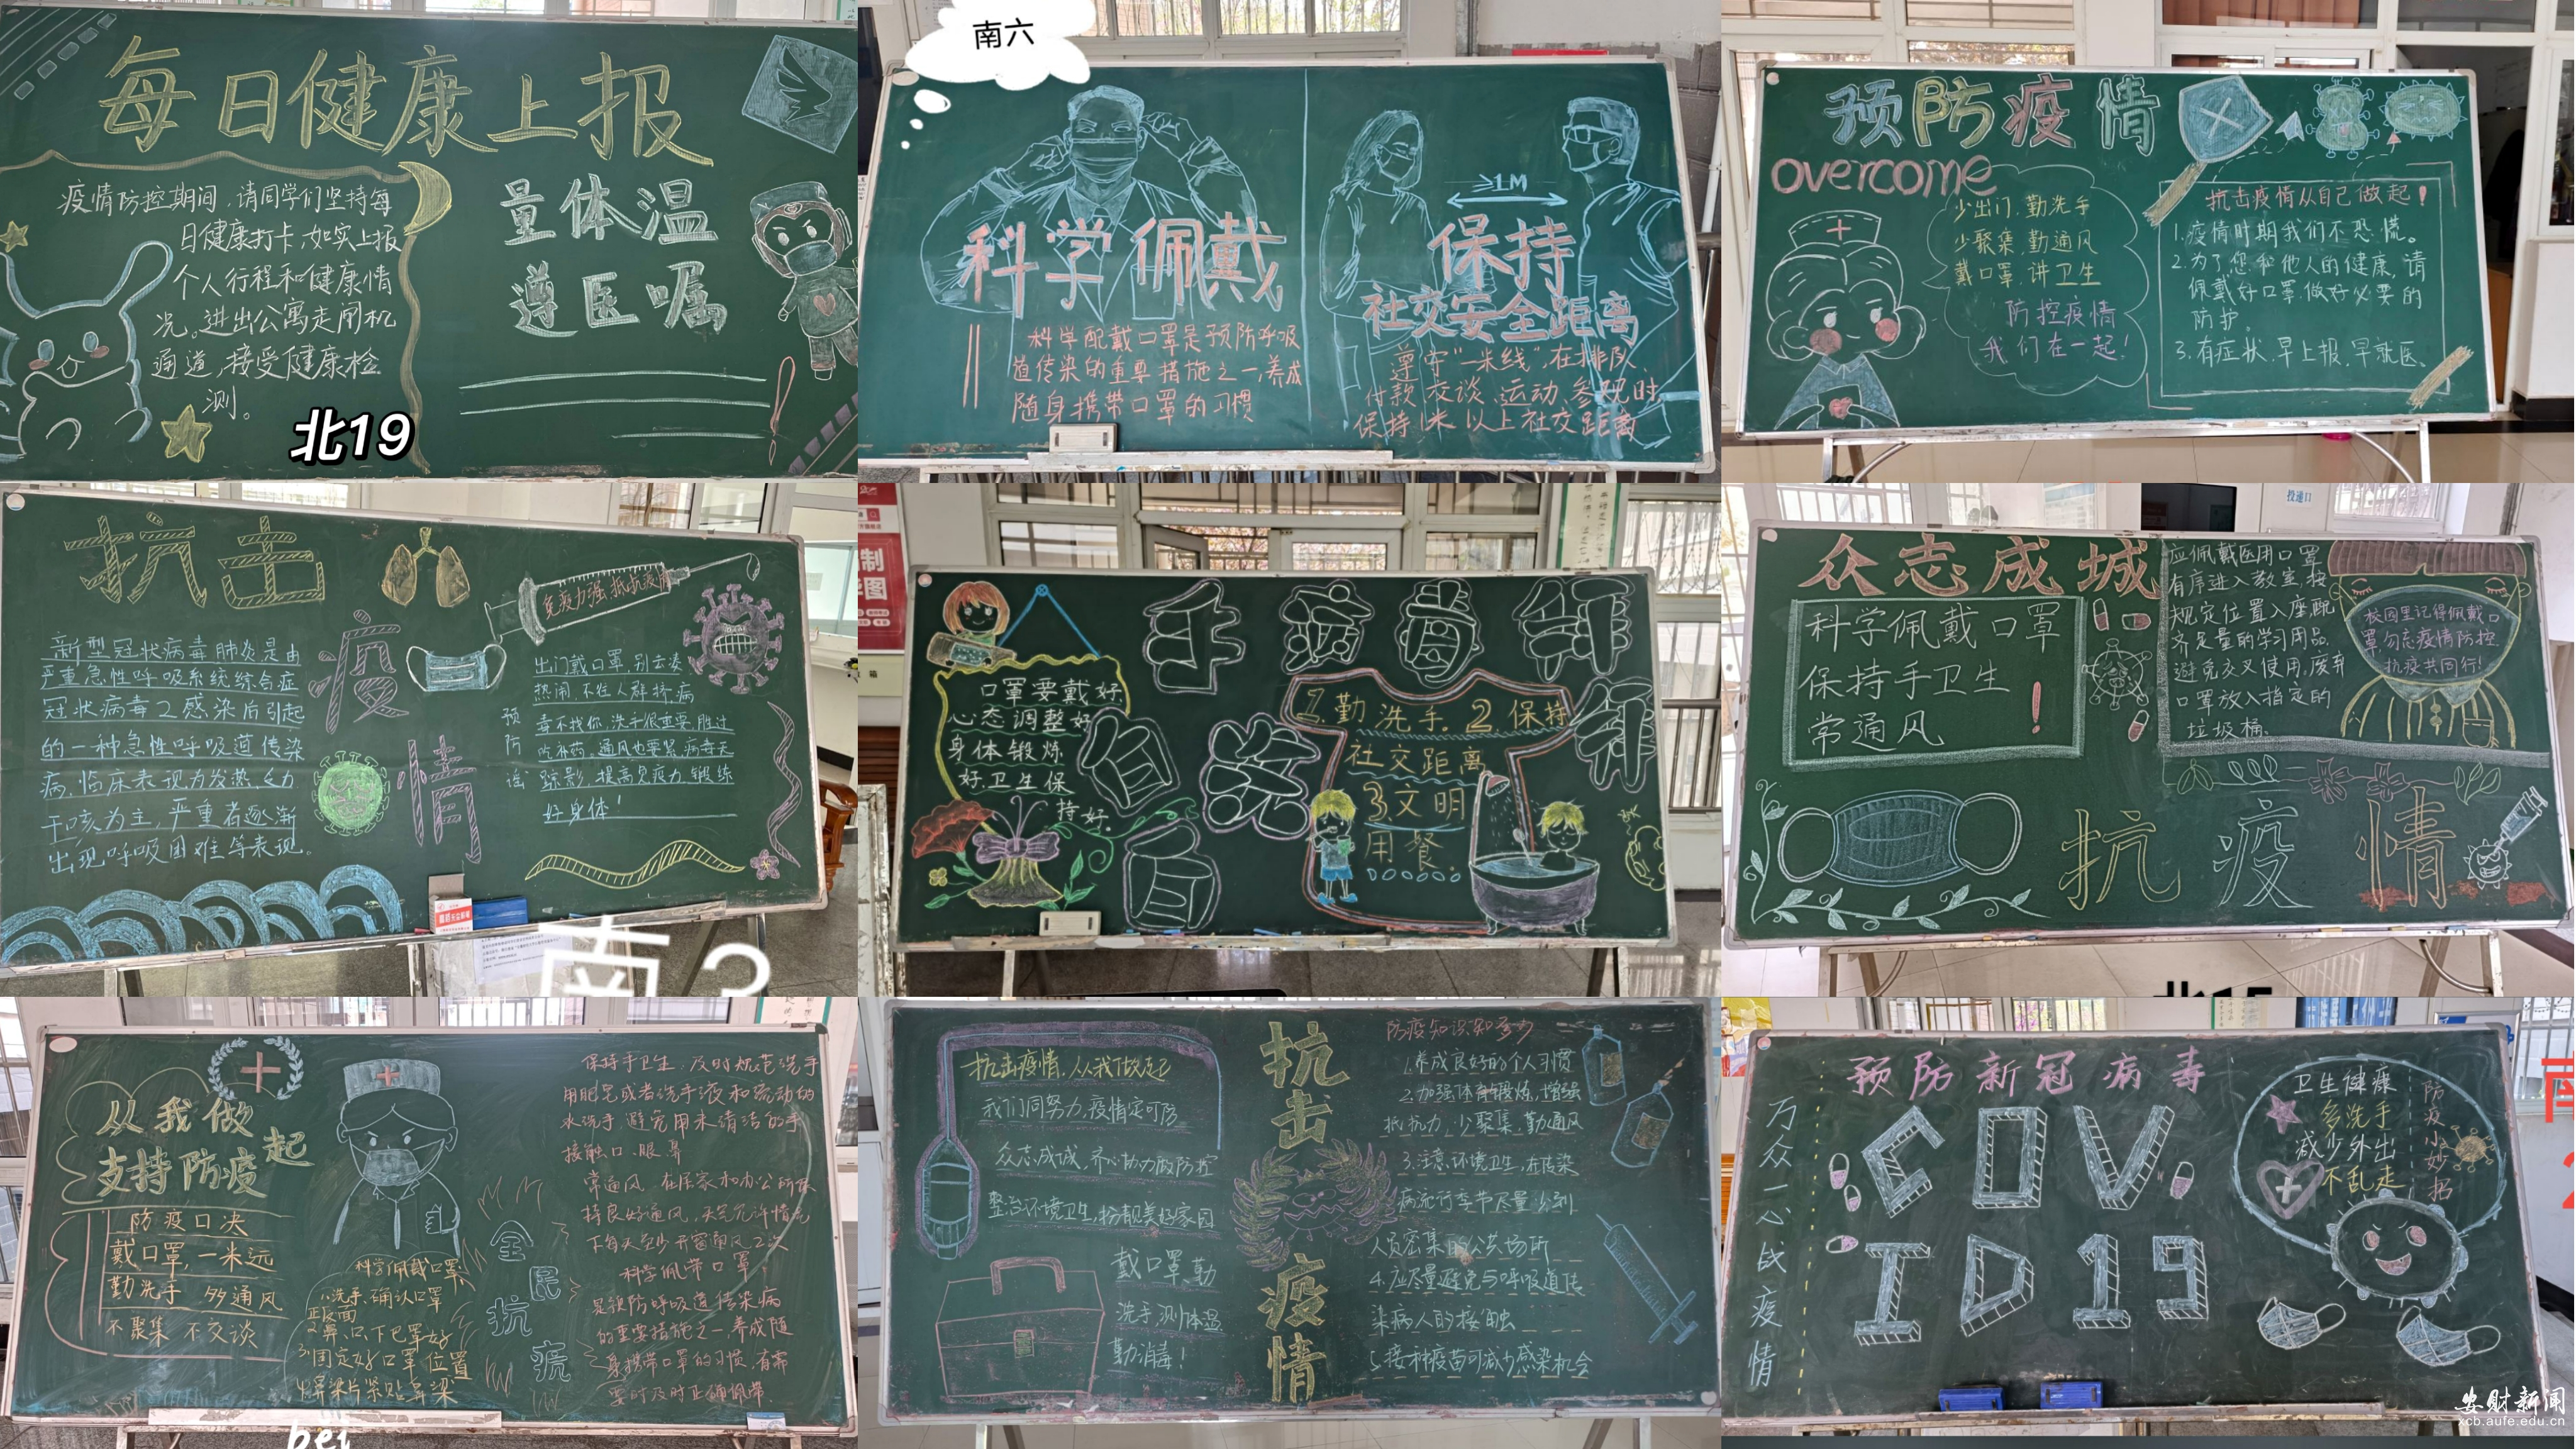 每日健康上报
疫情防控期间,请同学们坚持每
日健康打卡,如实上报
个人行程和健康情
况。进出公寓走闸机
通道,接受健康检
测。
量体温
遵医嘱
北19
南六
科学佩戴
科学配戴口罩是预防呼吸
道传染的重要措施之一,养成
随身携带口罩的习惯
≥1M
保持
社交安全距离
遵守"一米线",在排队、
付款、交谈、运动、参观时,
保持1米以上社交距离
预防疫情
overcome
少出门,勤洗手
少聚集,勤通风
戴口罩,讲卫生
防控疫情
我们在一起!
抗击疫情从自己做起!
1.疫情时期我们不恐慌。
2.为了您和他人的健康,请
佩戴好口罩,做好必要的
防护。
3.有症状,早上报,早就医。
抗击
疫
情
新型冠状病毒肺炎是由
严重急性呼吸系统综合症
冠状病毒2感染后引起
的一种急性呼吸道传染
病,临床表现为发热、乏力
干咳为主,严重者逐渐
出现呼吸困难等表现。
免疫力强 抵抗疫情
预
防
谣
出门戴口罩,别去凑
热闹,不往人群挤,病
毒不找你,洗手很重要,胜过
吃补药。通风也要紧,病毒无
踪影,提高免疫力,锻练
好身体!
南
口罩要戴好
心态调整好
身体锻炼
好卫生保
持好。
手病毒拜
自洗拜
1.勤洗手.2保持
社交距离
3.文明
用餐.
众志成城
科学佩戴口罩
保持手卫生
常通风
!
应佩戴医用口罩
有序进入教室,按
规定位置入座,配
齐足量的学习用品
避免交叉使用,废弃
口罩放入指定的
垃圾桶。
校园里记得佩戴口
罩,勿忘疫情防控
抗疫共同行!
抗疫情
投递口
从我做起
支持防疫
防疫口决
戴口罩,一米远
勤洗手 多通风
不聚集 不交谈
科学佩戴口罩
1.洗手、确认口罩
正反面
2鼻、口、下巴罩好
3固定好口罩位置
4鼻梁片紧贴鼻梁
全
民
抗
疫
保持手卫生,及时规范洗手
用肥皂或者洗手液和流动的
水洗手,避免用未清洁的手
接触口、眼、鼻
常通风,在居家和办公场所保
持良好通风,天气允许情况
下每天至少开窗通风2次
科学佩带口罩,
是预防呼吸道传染病
的重要措施之一,养成随
身携带口罩的习惯,有需
要时及时正确佩带
bei
抗击疫情,从我做起
我们同努力,疫情定可防
众志成城,齐心协力做防控
整治环境卫生,扮靓美好家园
戴口罩、勤
洗手,测体温
勤消毒!
抗
击
疫
情
防疫知识知多少
1.养成良好的个人习惯
2.加强体育锻炼,增强
抵抗力,少聚集,勤通风
3.注意环境卫生,在传染
病流行季节尽量少到
人员密集的公共场所
4.应尽量避免与呼吸道传
染病人的接触
5.接种疫苗可减少感染机会
预防新冠病毒
万众一心战疫情
COV
ID19
卫生健康
多洗手
减少外出
不乱走
防疫小妙招
安财新闻
xcb.aufe.edu.cn